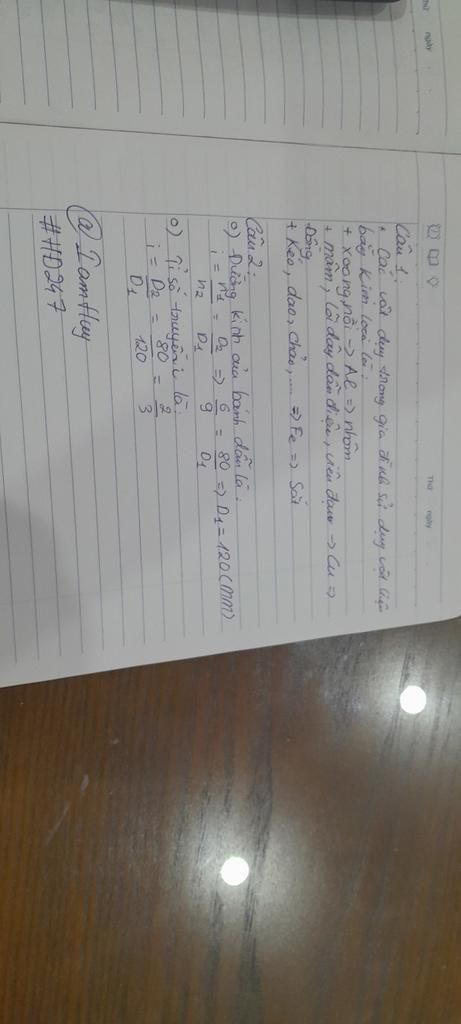 Thứ
ngày
Thứ
ngày
Câu 1:
* Các vật dụng trong gia đình sử dụng vật liệu
bằng kim loại là:
+ xoong, nồi → Al ⇒ nhôm
+ mâm, lõi dây dẫn điện, viên đạn → Cu ⇒
Đồng
+ Kéo, dao, chảo, ... ⇒ Fe ⇒ Sắt
Câu 2:
o) Đường kính của bánh dẫn là:
i = n1/n2 = D2/D1 ⇒ 6/9 = 80/D1 ⇒ D1 = 120 (mm)
o) Tỉ số truyền i là:
i = D2/D1 = 80/120 = 2/3
@ IamHuy
#HD247